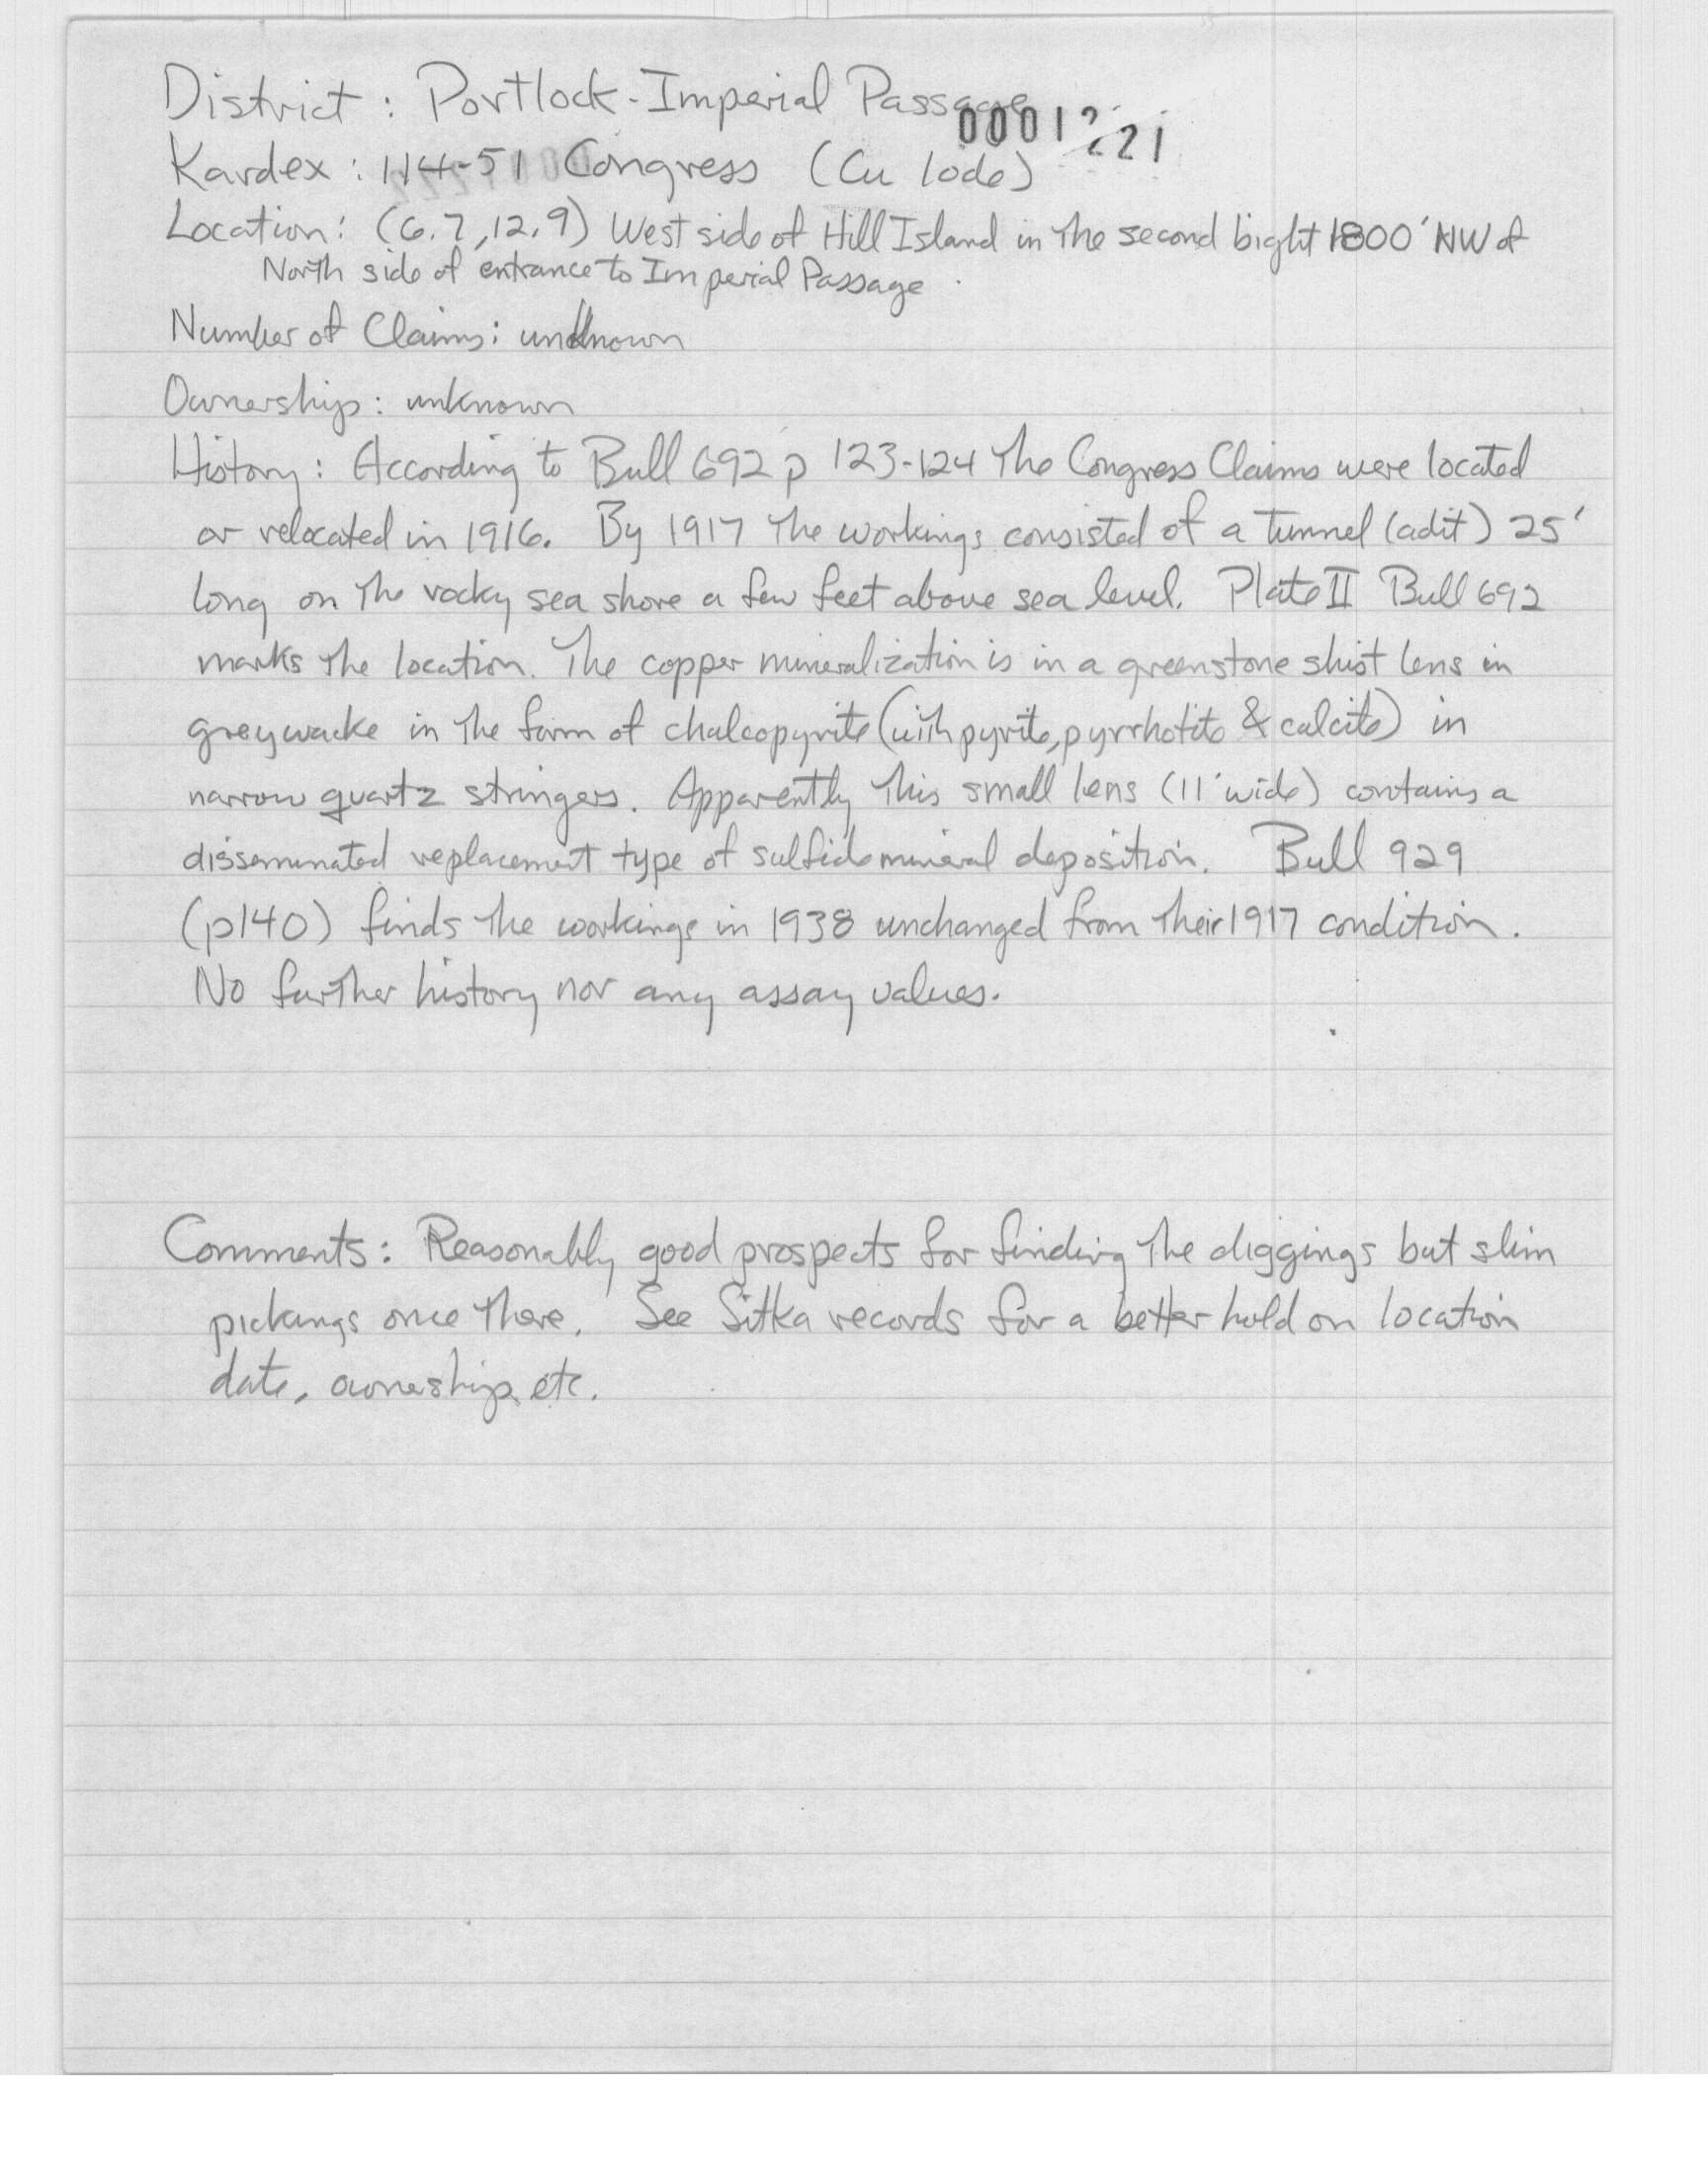 District : Portlock-Imperial Passage
00012221
Kardex : 114-51 Congress (Cu lode)
Location: (6.7,12.9) West side of Hill Island in the second bight 1800' NW of
North side of entrance to Imperial Passage.
Number of Claims: unknown
Ownership: unknown
History: According to Bull 692 p 123-124 The Congress Claims were located
or relocated in 1916. By 1917 The workings consisted of a tunnel (adit) 25'
long on the rocky sea shore a few feet above sea level. Plate II Bull 692
marks the location. The copper mineralization is in a greenstone shist lens in
greywacke in the form of chalcopyrite (with pyrite, pyrrhotite & calcite) in
narrow quartz stringers. Apparently this small lens (11' wide) contains a
disseminated replacement type of sulfide mineral deposition. Bull 929
(p140) finds the workings in 1938 unchanged from their 1917 condition.
No further history nor any assay values.
Comments: Reasonably good prospects for finding the diggings but slim
pickings once there. See Sitka records for a better hold on location
date, ownership, etc.